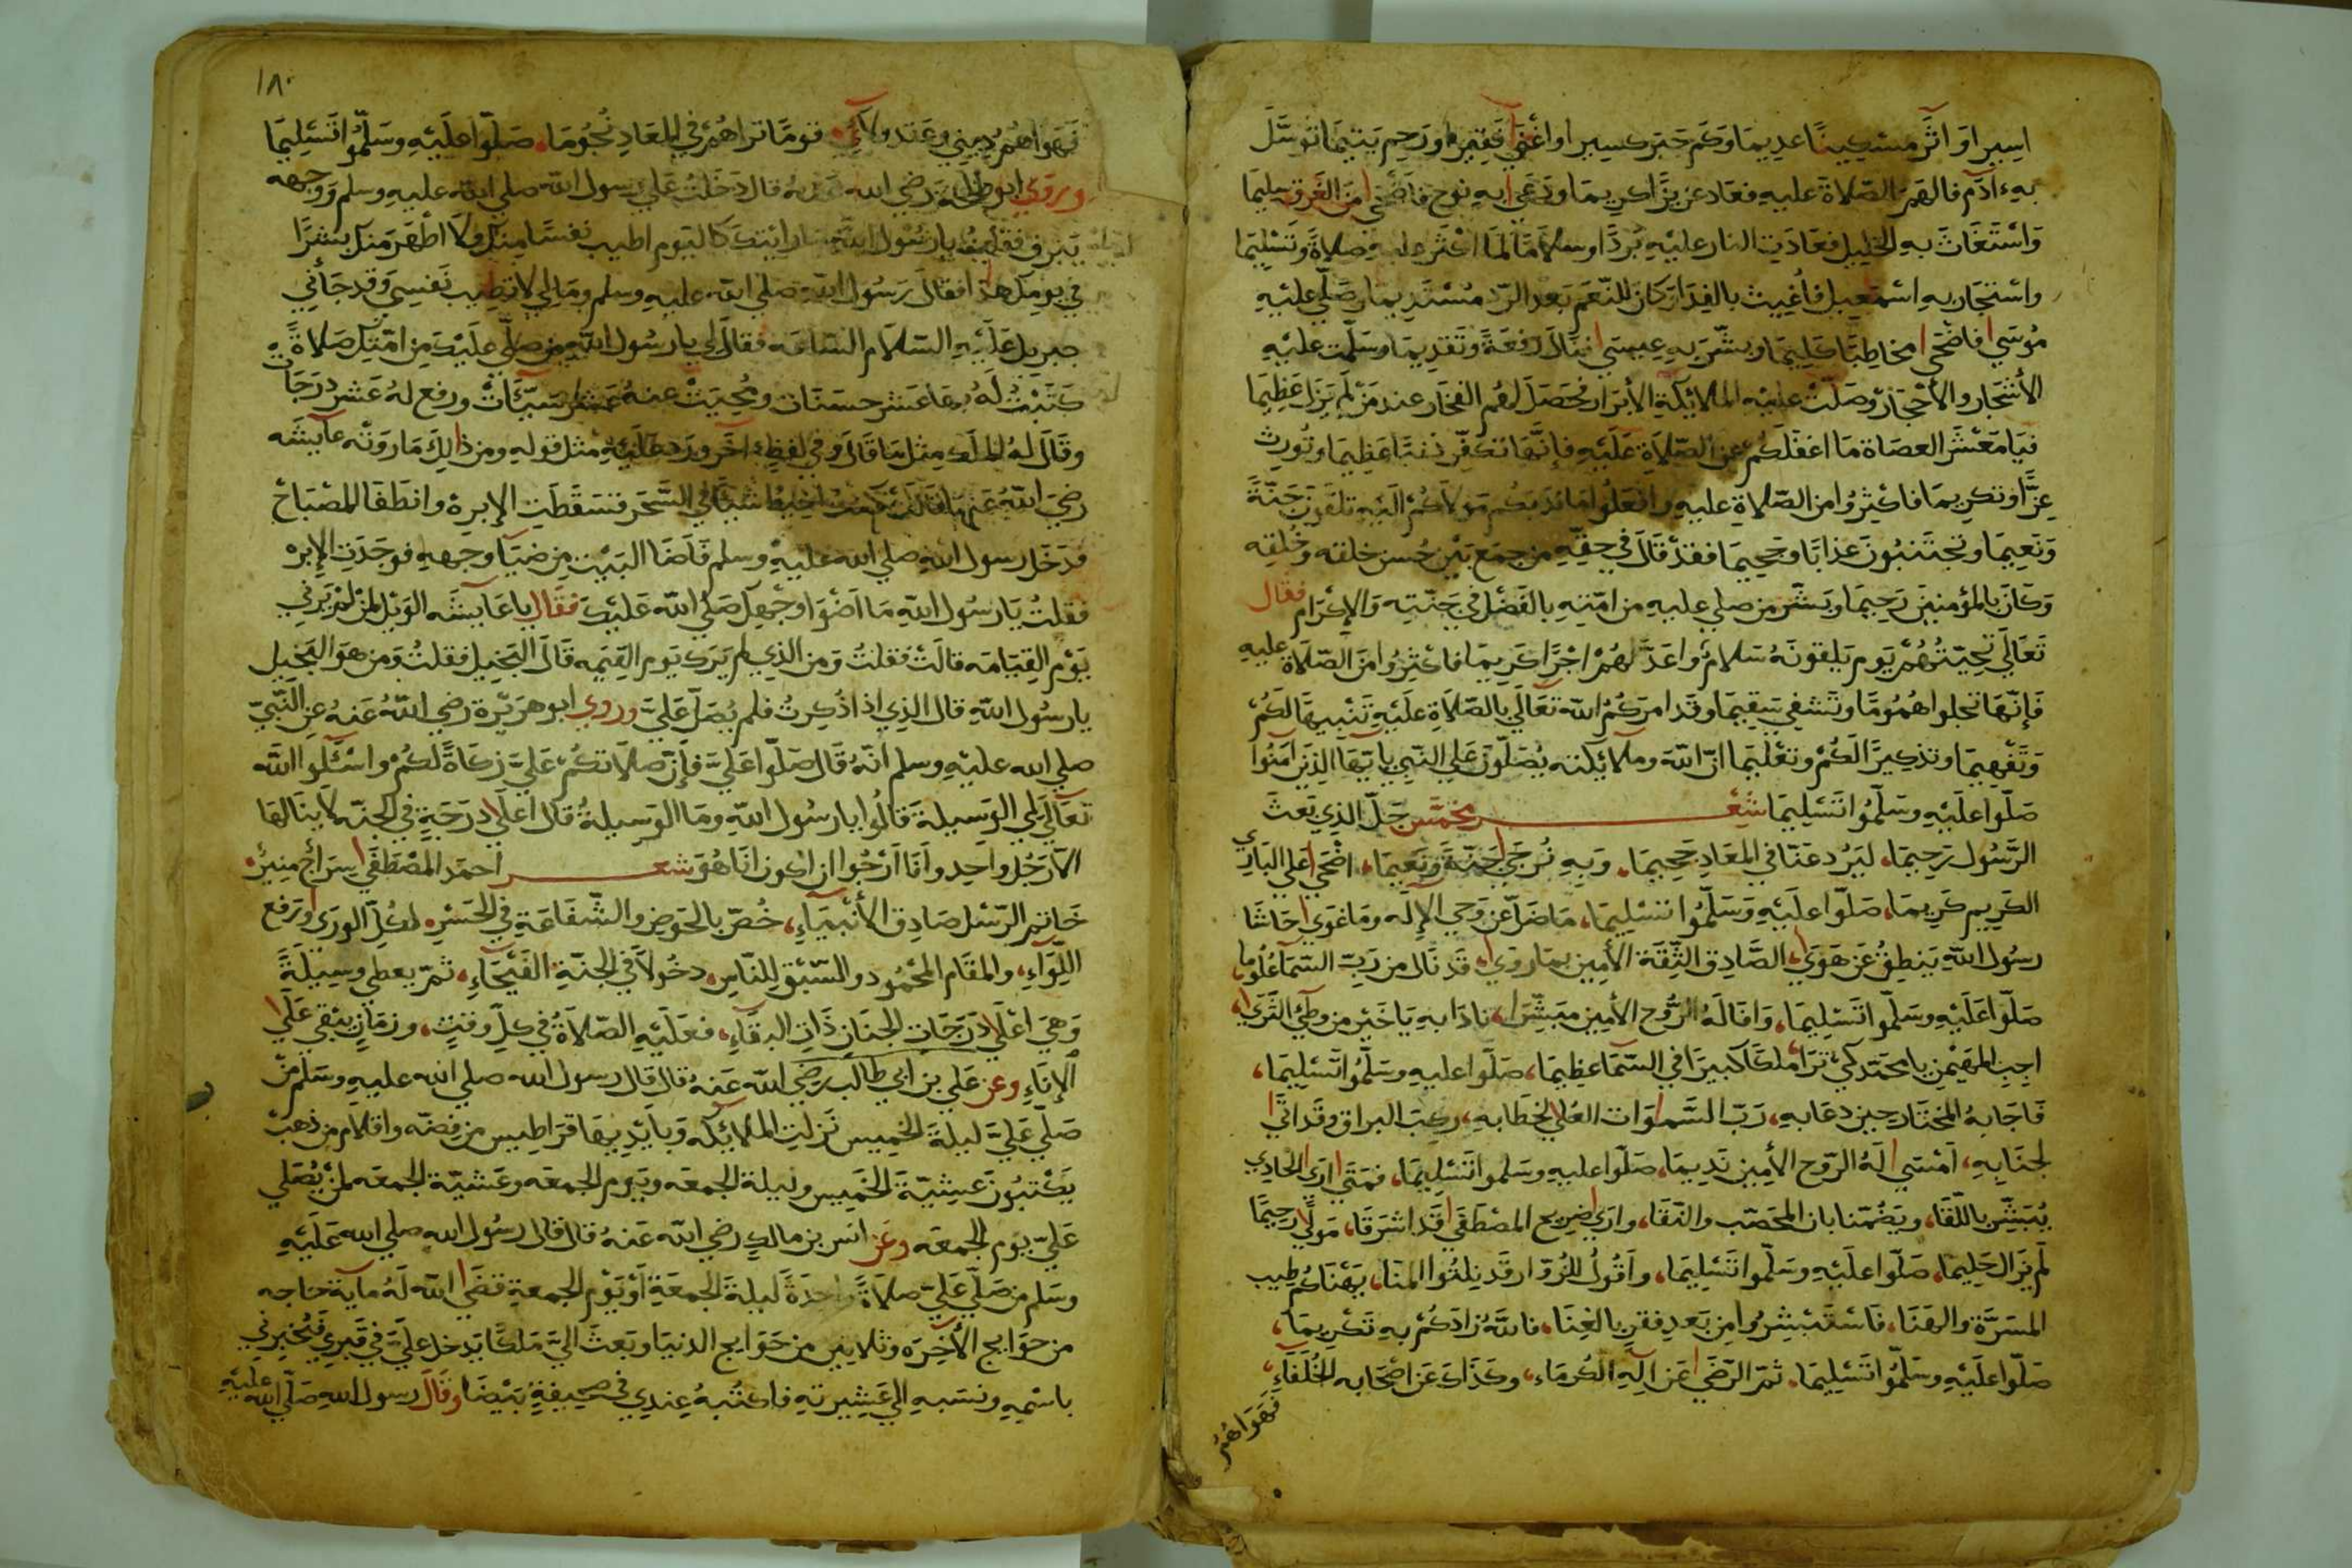 اسيرا او اثر مسكينا عديما وكم جبر كسيرا او اغنى فقيرا ورحم يتيما توسل
به آدم فالهم الصلاة عليه فعاد عزيزا كريما ودعى به نوح فاضحى من الغرق سليما
واستغاث به الخليل فعادت النار عليه بردا وسلاما لما اكثر عليه صلاة وتسليما
واستجار به اسمعيل فأغيث بالفدا وكان للنعم بعد الرد مستديما وصلى عليه
موسى فاضحى مخاطبا كليما وبشر به عيسى فنال رفعة وتقديما وسلمت عليه
الأشجار والأحجار وصلت عليه الملائكة الأبرار فحصل لهم الفخار عند من لم يزل عظيما
فيا معشر العصاة ما اغفلكم عن الصلاة عليه فإنها تكفر ذنبا عظيما وتورث
عزا وتكريما فاكثروا من الصلاة عليه وافعلوا ما ندبكم مولاكم اليه تلقون جنة
ونعيما وتجتنبون عذابا وجحيما فقد قال في حقه من جمع بين حسن خلقه وخلقه
وكان بالمؤمنين رحيما وبشر من صلي عليه من امته بالفضل في جنته والإكرام فقال
تعالى تحيتهم يوم يلقونه سلام واعد لهم اجرا كريما فاكثروا من الصلاة عليه
فإنها تجلوا هموما وتشفي سقيما وقد امركم الله تعالي بالصلاة عليه تنبيها لكم
وتفهيما وتذكيرا لكم وتعليما ان الله وملائكته يصلون على النبي يا أيها الذين آمنوا
صلوا عليه وسلموا تسليما شعر مخمس جل الذي بعث
الرسول رحيما، ليرد عنا في المعاد جحيما، وبه نرجي جنة ونعيما، اضحى على الباري
الكريم كريما، صلوا عليه وسلموا تسليما، ما ضل عن وحي الإله وما غوى، حاشا
رسول الله ينطق عن هوى، الصادق الثقة الأمين بما روى، قد نال من رب السما علوما
صلوا عليه وسلموا تسليما، وافا له الروح الأمين مبشرا، نادا به يا خير من وطئ الثرى،
اجب المهيمن يا محمد كي ترا ملكا كبيرا في السما عظيما، صلوا عليه وسلموا تسليما،
فاجابه المختار حين دعا به، رب السموات العلى لخطابه، ركب البراق وقد اتى
لجنابه، امسى له الروح الأمين نديما، صلوا عليه وسلموا تسليما، فمتى ارى الحادي
يبشر باللقا، ويضمنا بان المحصب والنقا، وارى ضريح المصطفى قد اشرقا، مولى رحيما
لم يزل حليما، صلوا عليه وسلموا تسليما، واقول للزوار قد نلتوا المنا، يهناكم طيب
المسرة والهنا، فاستبشروا من بعد فقر بالغنا، فالله زادكم به تكريما،
صلوا عليه وسلموا تسليما، ثم الرضى عن اله الكرماء، وكذاك عن اصحابه الخلفاء،
فهواهم
١٨٠
فهواهم ديني وعقد ولائي، قوما تراهم في المعاد نجوما، صلوا عليه وسلموا تسليما
وروي ابو طلحة رضي الله عنه قال دخلت على رسول الله صلي الله عليه وسلم ووجهه
يبرق فقلت يا رسول الله ما رايتك كاليوم اطيب نفسا منك ولا اظهر منك بشرا
في يومك هذا فقال رسول الله صلي الله عليه وسلم ومالي لا تطيب نفسي وقد جأني
جبريل عليه السلام الساعة فقال لي يا رسول الله من صلي عليك من امتك صلاة
كتبت له بها عشر حسنات ومحيت عنه عشر سيئات ورفع له عشر درجات
وقال له الملك مثل ما قال وفي لفظ آخر ورد عليه مثل قوله ومن ذلك ما روته عآيشه
رضي الله عنها قالت كنت اخيط شيأ في السحر فسقطت الإبرة وانطفا المصباح
فدخل رسول الله صلي الله عليه وسلم فاضا البيت من ضيا وجهه فوجدت الإبره
فقلت يا رسول الله ما اضوا وجهك صلي الله عليك فقال يا عآيشه الويل لمن لم يرني
يوم القيامه قالت فقلت ومن الذي لم يرك يوم القيمه قال البخيل فقلت ومن هو البخيل
يا رسول الله قال الذي اذا ذكرت فلم يصل علي وروي ابو هريرة رضي الله عنه عن النبي
صلي الله عليه وسلم انه قال صلوا علي فإن صلاتكم علي زكاة لكم واسئلوا الله
تعالى لي الوسيلة قالوا يا رسول الله وما الوسيلة قال اعلى درجة في الجنه لا ينالها
الا رجل واحد وانا ارجوا ان اكون انا هو شعر احمد المصطفى سراج منير،
خاتم الرسل صادق الأنبياء، خص بالحوض والشفاعة في الحشر، لكل الورى ورفع
اللواء، والمقام المحمود والسبق للناس، دخولا في الجنة الفيحاء، ثم يعطى وسيلة
وهي اعلى درجات الجنان ذات البقاء، فعليه الصلاة في كل وقت، وزمان يبقى على
الإناء وعن علي بن ابي طالب رضي الله عنه قال قال رسول الله صلي الله عليه وسلم من
صلي علي ليلة الخميس نزلت الملائكه وبأيديها قراطيس من فضه واقلام من ذهب
يكتبون عشية الخميس وليلة الجمعه ويوم الجمعه وعشية الجمعه لمن يصلي
علي يوم الجمعه وعن انس بن مالك رضي الله عنه قال قال رسول الله صلي الله عليه
وسلم من صلي علي صلاة واحدة ليلة الجمعة أو يوم الجمعة قضى الله له مآية حاجه
من حوايج الآخره وثلاثين من حوايج الدنيا وبعث الي ملكا يدخل علي في قبري فيخبرني
باسمه ونسبه الي عشيرته فاكتبه عندي في صحيفة بيضا وقال رسول الله صلي الله عليه